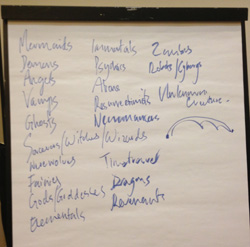 Mermaids
Demons
Angels
Vamps
Ghosts
Sorcerers/Witches/Wizards
Werewolves
Fairies
Gods/Goddesses
Elementals
Immortals
Psychics
Aliens
Necromancers
Time travel
Dragons
Revenants
Zombies
Robots/Cyborgs
Unknown
Creature